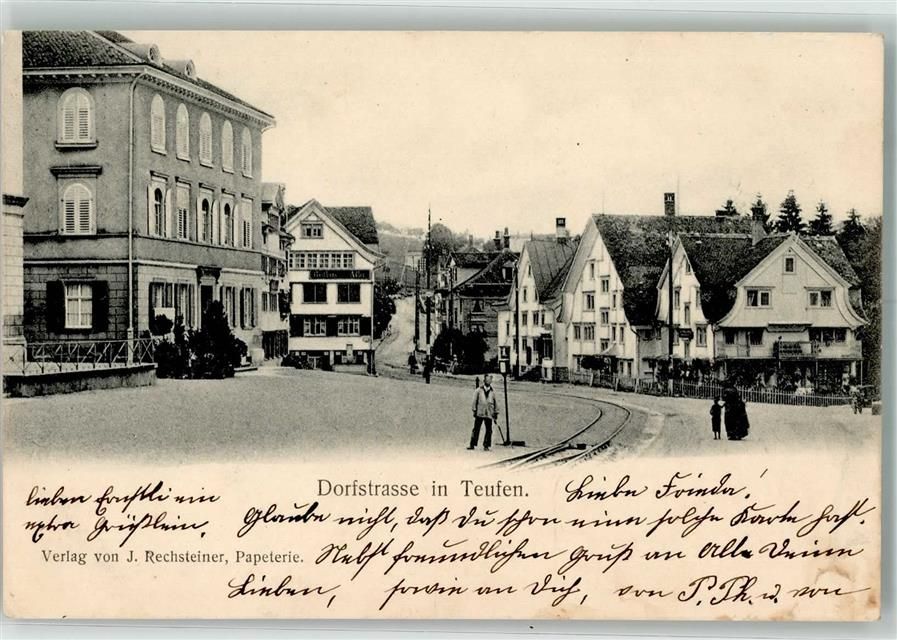 Gasthaus Adler
Dorfstrasse in Teufen.
Liebe Frieda!
lieben Ernstli ein
extra Grüßlein.
Glaube nicht, daß Du schon eine solche Karte hast.
Verlag von J. Rechsteiner, Papeterie.
Nebst freundlichen Gruß an Alle Deine
Lieben, sowie an Dich, von P. Th. u. von